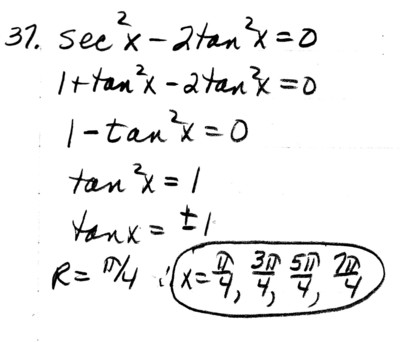 37. sec²x - 2tan²x = 0
1 + tan²x - 2tan²x = 0
1 - tan²x = 0
tan²x = 1
tan x = ±1
R = π/4 ∴ x = π/4, 3π/4, 5π/4, 7π/4